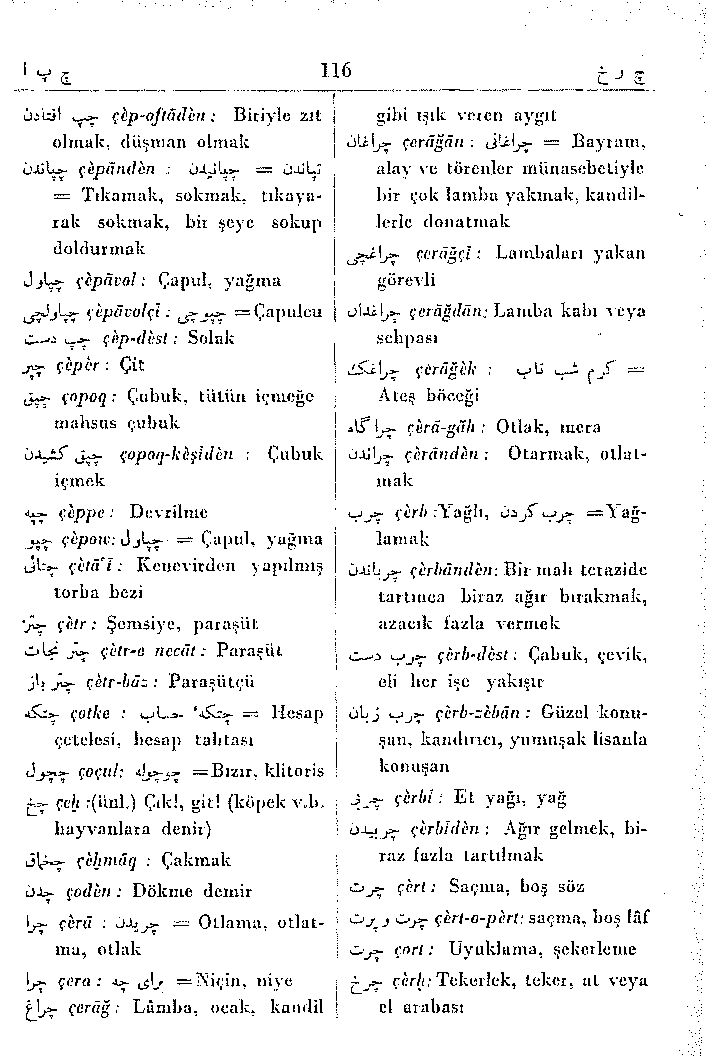 چ پ ا 116 چ ر خ
چپ افتادن çèp-oftādèn : Biriyle zıt
olmak, düşman olmak
چپاندن çèpāndèn : چپانیدن = تپاندن
= Tıkamak, sokmak, tıkaya-
rak sokmak, bir şeye sokup
doldurmak
چپاول çèpāvol : Çapul, yağma
چپاولچی çèpāvolçî : چپوچی = Çapulcu
چپ دست çèp-dèst : Solak
چپر çèpèr : Çit
چپق çopoq : Çubuk, tütün içmeğe
mahsus çubuk
چپق کشیدن çopoq-kèşidèn : Çubuk
içmek
چپه çèppe : Devrilme
چپو çèpow: چپاول = Çapul, yağma
چتائی çètā'î : Kenevirden yapılmış
torba bezi
چتر çètr : Şemsiye, paraşüt
چتر نجات çètr-e necāt : Paraşüt
چتر باز çètr-bāz : Paraşütçü
چتکه çotke : چتکهٔ حساب = Hesap
çetelesi, hesap tahtası
چچول çoçul: چوچوله = Bızır, klitoris
چخ çeḫ :(ünl.) Çık!, git! (köpek v.b.
hayvanlara denir)
چخماق çèḫmāq : Çakmak
چدن çodèn : Dökme demir
چرا çèrā : چریدن = Otlama, otlat-
ma, otlak
چرا çera : برای چه = Niçin, niye
چراغ çerāğ : Lâmba, ocak, kandil
gibi ışık veren aygıt
چراغان çerāğān : چراغانی = Bayram,
alay ve törenler münasebetiyle
bir çok lamba yakmak, kandil-
lerle donatmak
چراغچی çerāğçî : Lambaları yakan
görevli
چراغدان çerāğdān: Lamba kabı veya
sehpası
چراغک çèrāğèk : کرم شب تاب =
Ateş böceği
چرا گاه çèrā-gāh : Otlak, mera
چراندن çèrāndèn : Otarmak, otlat-
mak
چرب çèrb :Yağlı, چرب کردن = Yağ-
lamak
چرباندن çèrbāndèn: Bir malı terazide
tartınca biraz ağır bırakmak,
azacık fazla vermek
چرب دست çèrb-dèst : Çabuk, çevik,
eli her işe yakışır
چرب زبان çèrb-zèbān : Güzel konu-
şan, kandırıcı, yumuşak lisanla
konuşan
چربی çèrbî : Et yağı, yağ
چربیدن çèrbîdèn : Ağır gelmek, bi-
raz fazla tartılmak
چرت çèrt : Saçma, boş söz
چرت و پرت çèrt-o-pèrt: saçma, boş lâf
چرت çort : Uyuklama, şekerleme
چرخ çèrḫ: Tekerlek, teker, at veya
el arabası